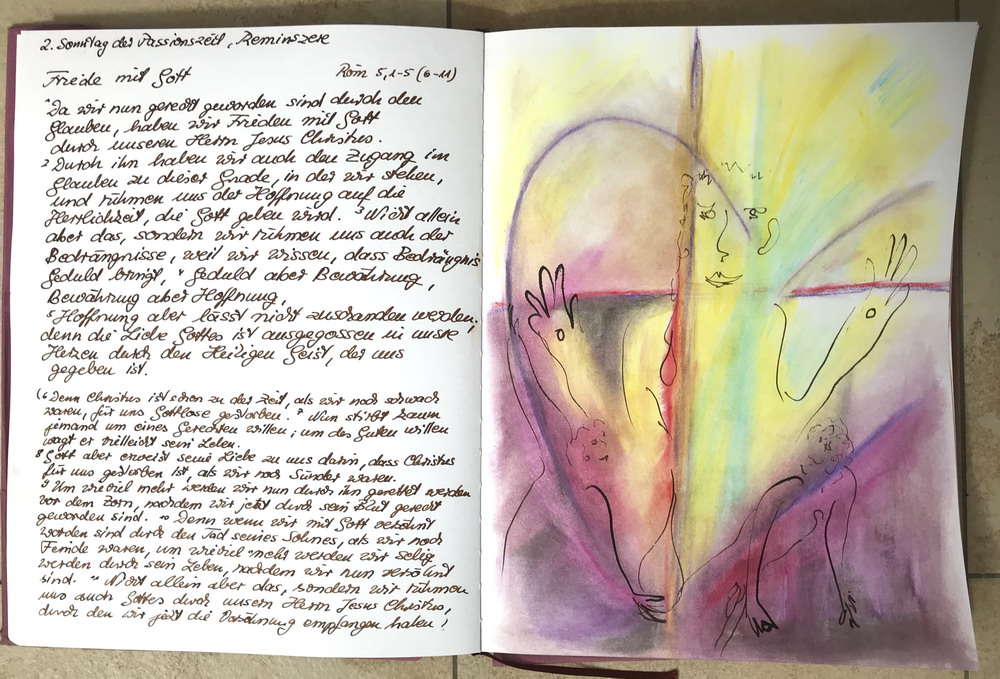 2. Sonntag der Passionszeit, Reminiszere
Friede mit Gott Röm 5,1-5 (6-11)
1 Da wir nun gerecht geworden sind durch den
Glauben, haben wir Frieden mit Gott
durch unseren Herrn Jesus Christus.
2 Durch ihn haben wir auch den Zugang im
Glauben zu dieser Gnade, in der wir stehen,
und rühmen uns der Hoffnung auf die
Herrlichkeit, die Gott geben wird. 3 Nicht allein
aber das, sondern wir rühmen uns auch der
Bedrängnisse, weil wir wissen, dass Bedrängnis
Geduld bringt, 4 Geduld aber Bewährung,
Bewährung aber Hoffnung,
5 Hoffnung aber lässt nicht zuschanden werden;
denn die Liebe Gottes ist ausgegossen in unsre
Herzen durch den Heiligen Geist, der uns
gegeben ist.
(6 Denn Christus ist schon zu der Zeit, als wir noch schwach
waren, für uns Gottlose gestorben. 7 Nun stirbt kaum
jemand um eines Gerechten willen; um des Guten willen
wagt er vielleicht sein Leben.
8 Gott aber erweist seine Liebe zu uns darin, dass Christus
für uns gestorben ist, als wir noch Sünder waren.
9 Um wieviel mehr werden wir nun durch ihn gerettet werden
vor dem Zorn, nachdem wir jetzt durch sein Blut gerecht
geworden sind. 10 Denn wenn wir mit Gott versöhnt
worden sind durch den Tod seines Sohnes, als wir noch
Feinde waren, um wieviel mehr werden wir selig
werden durch sein Leben, nachdem wir nun versöhnt
sind. 11 Nicht allein aber das, sondern wir rühmen
uns auch Gottes durch unsern Herrn Jesus Christus,
durch den wir jetzt die Versöhnung empfangen haben!